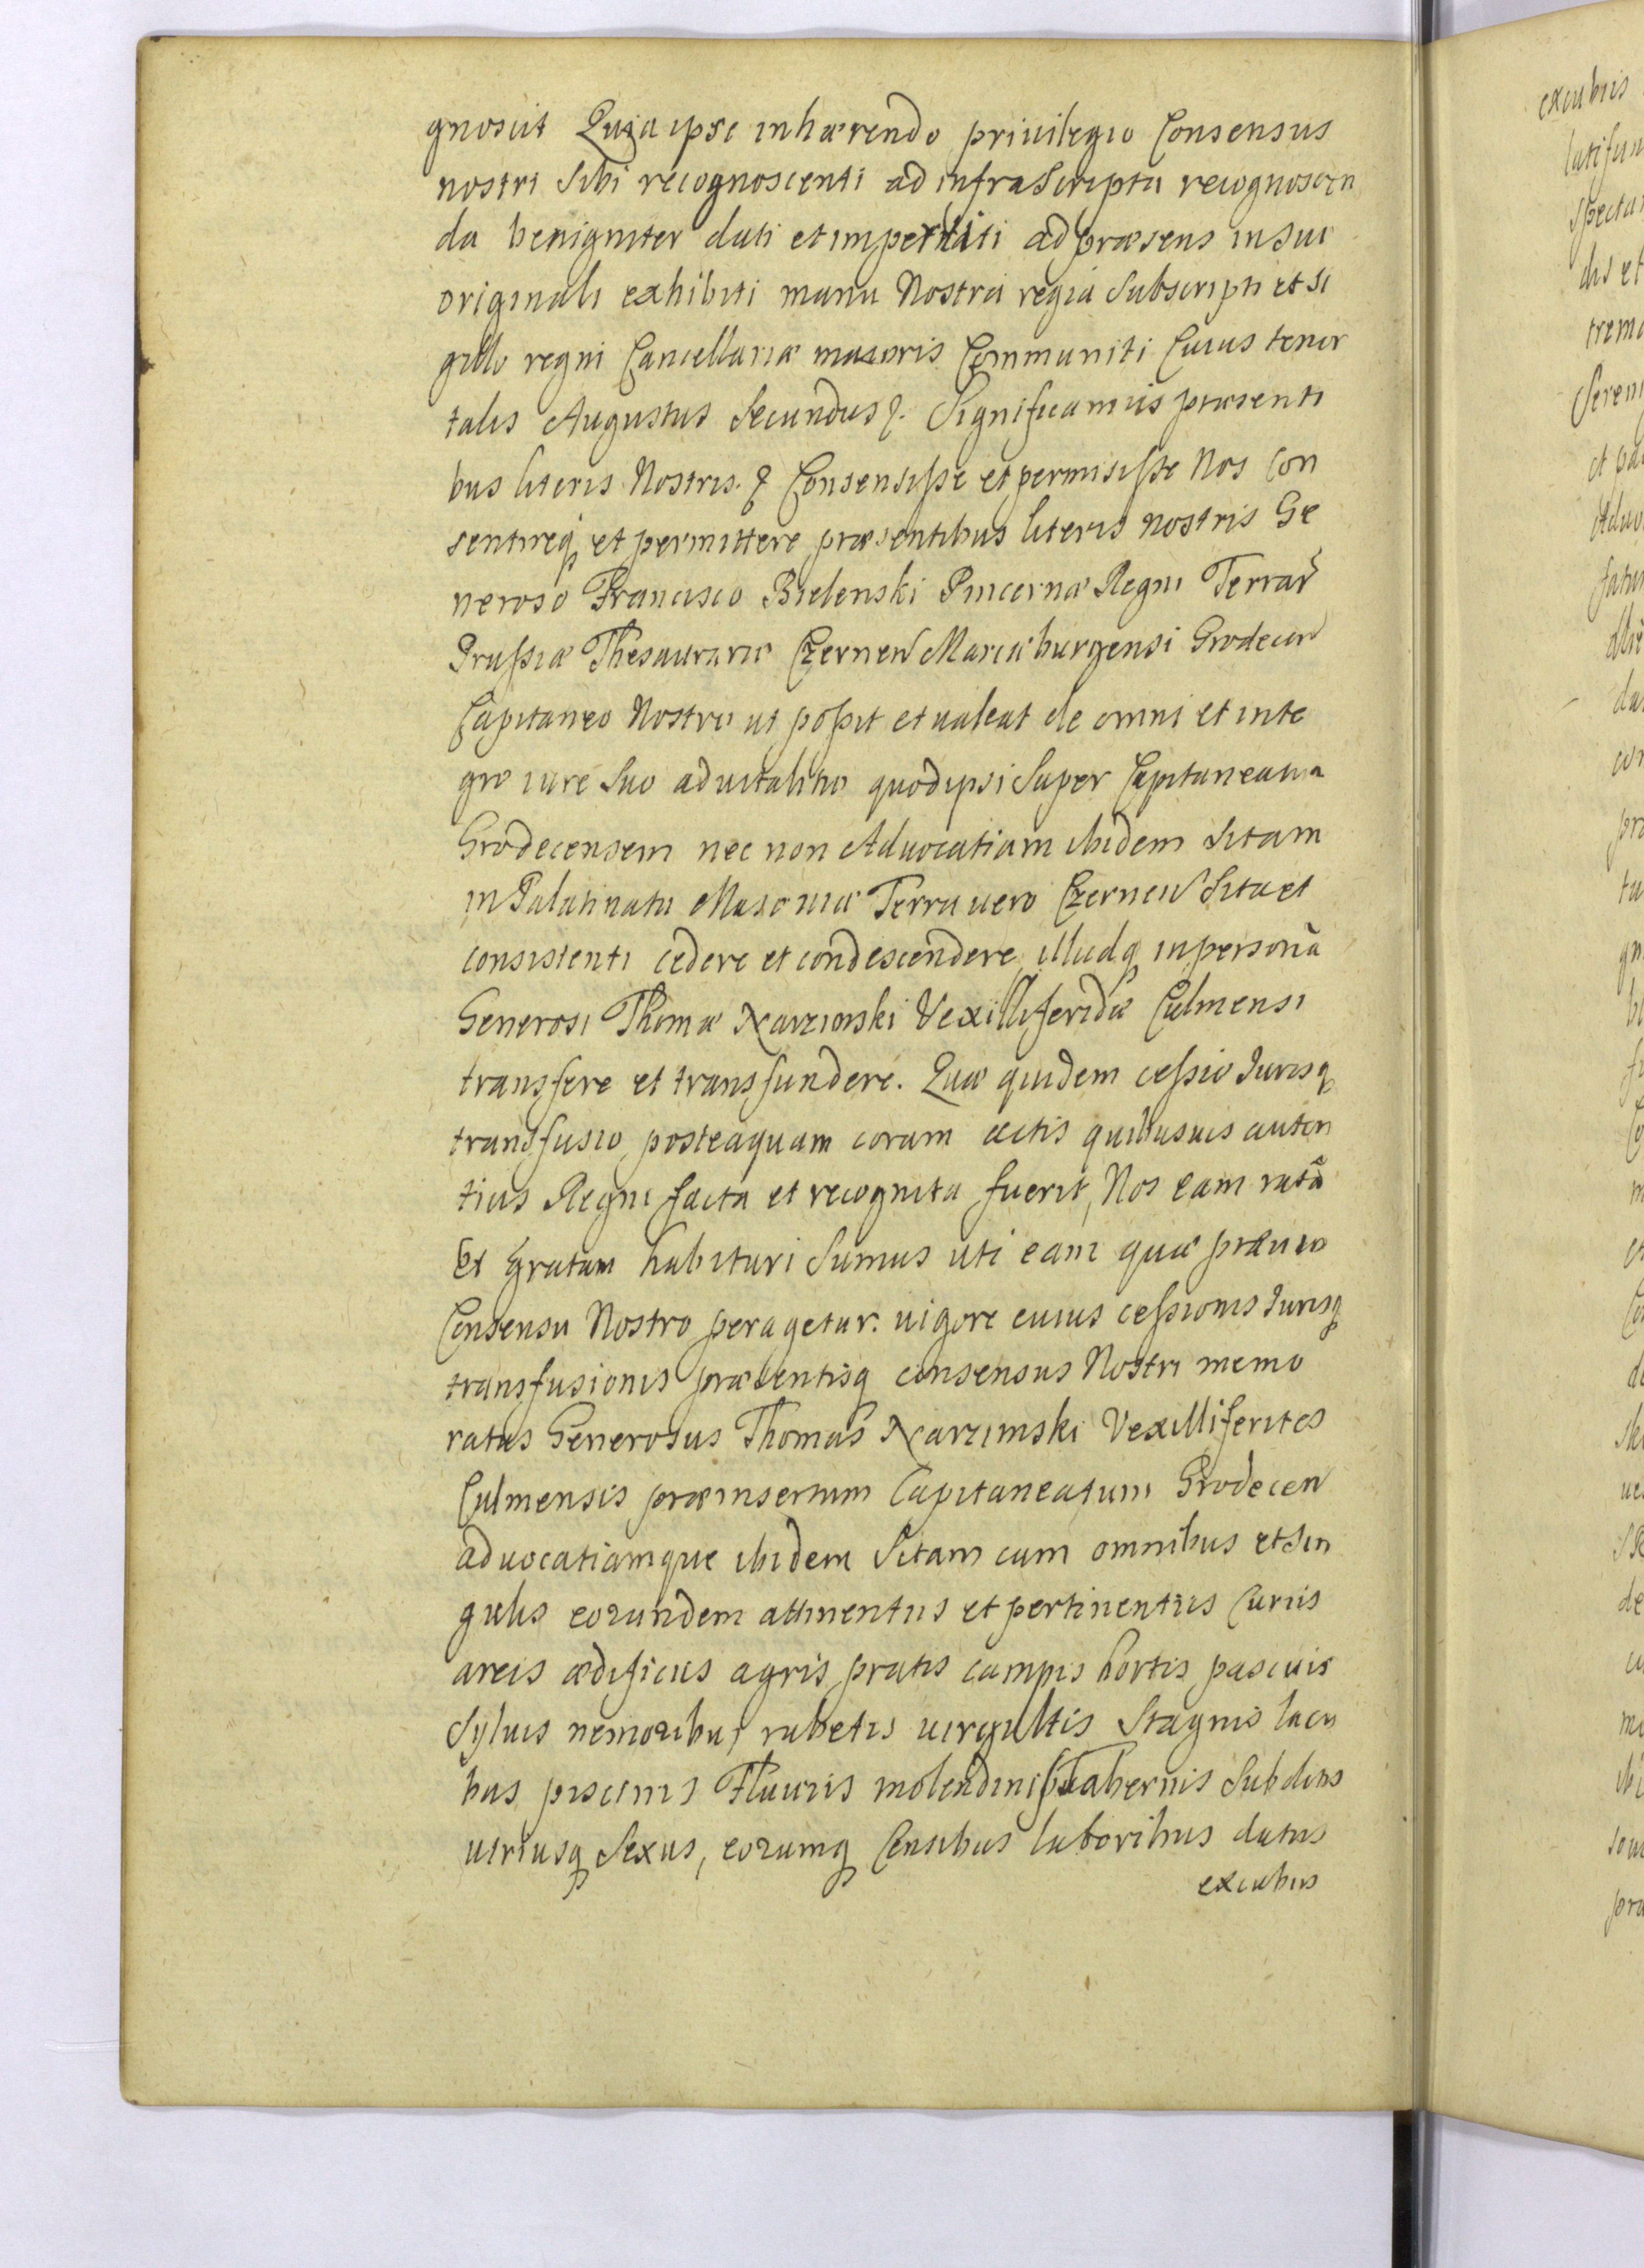 gnoscit Quia ipse inhærendo priuilegio Consensus
nostri Sibi recognoscenti ad infraScripta recognoscen
da benigniter dati et impertiti ad præsens in Sui
originali exhibiti manu Nostra regia Subscripti et Si
gillo regni Cancellariæ maioris Communiti Cuius tenor
talis Augustus Secundus &. Significamus præsenti
bus literis Nostris. & Consensiſse et permisiſse Nos Con
sentireq et permittere præsentibus literis nostris Ge
neroso Francisco Bielenski Pincernæ Regni Terrar
Pruſsiæ Thesaurario Czernen Mariæburgensi Grodecen
Capitaneo Nostro ut poſsit et ualeat de omni et inte
gro iure Suo aduitalitio quod ipsi Super Capitaneatu
Grodecensem nec non Aduocatiam ibidem Sitam
in Palatinatu Masouiæ Terra uero Czernen Sita et
consistenti cedere et condescendere, illudq in personã
Generosi Thomæ Narzimski Vexilliferidæ Culmensi
transfere et transfundere. Quæ quidem ceſsio Jurisq
transfusio, posteaquam coram actis quibusuis auten
ticis Regni facta et recognita fuerit, Nos eam ratã
Et gratam habituri Sumus uti eam quæ præuio
Consensu Nostro peragetur. uigore cuius ceſsionis Jurisq
transfusionis præsentisq consensus Nostri memo
ratus Generosus Thomas Narzimski Vexilliferites
Culmensis præinsertum Capitaneatum Grodecen
aduocatiamque ibidem Sitam cum omnibus et Sin
gulis eorundem attinentiis et pertinentiis Curiis
areis ædificiis agris pratis campis hortis pascuis
Syluis nemoribus rubetis uirgultis Stagnis lacu
bus piscinis Fluuiis molendinis Tabernis Subditis
utriusq Sexus, eorumq Censibus laboribus datiis
excubiis
excubiis